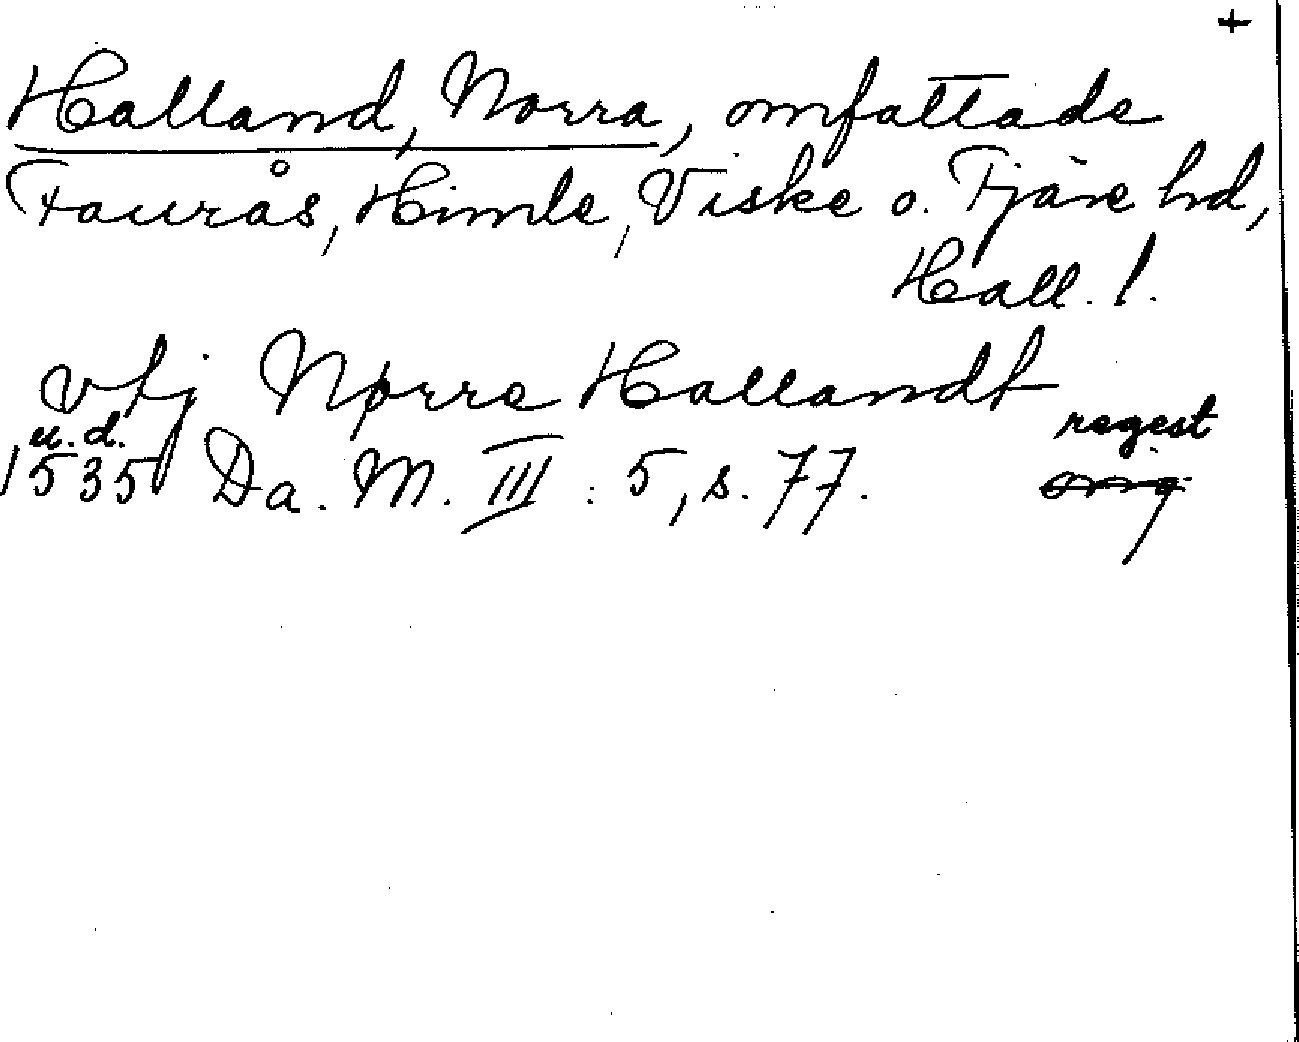 +
Halland, Norra, omfattade
Faurås, Himle, Viske o. Fjäre hd,
Hall. l.
vtj Nørre Hallandt
u.d. regest
1535 Da. M. III : 5, s. 77. omg